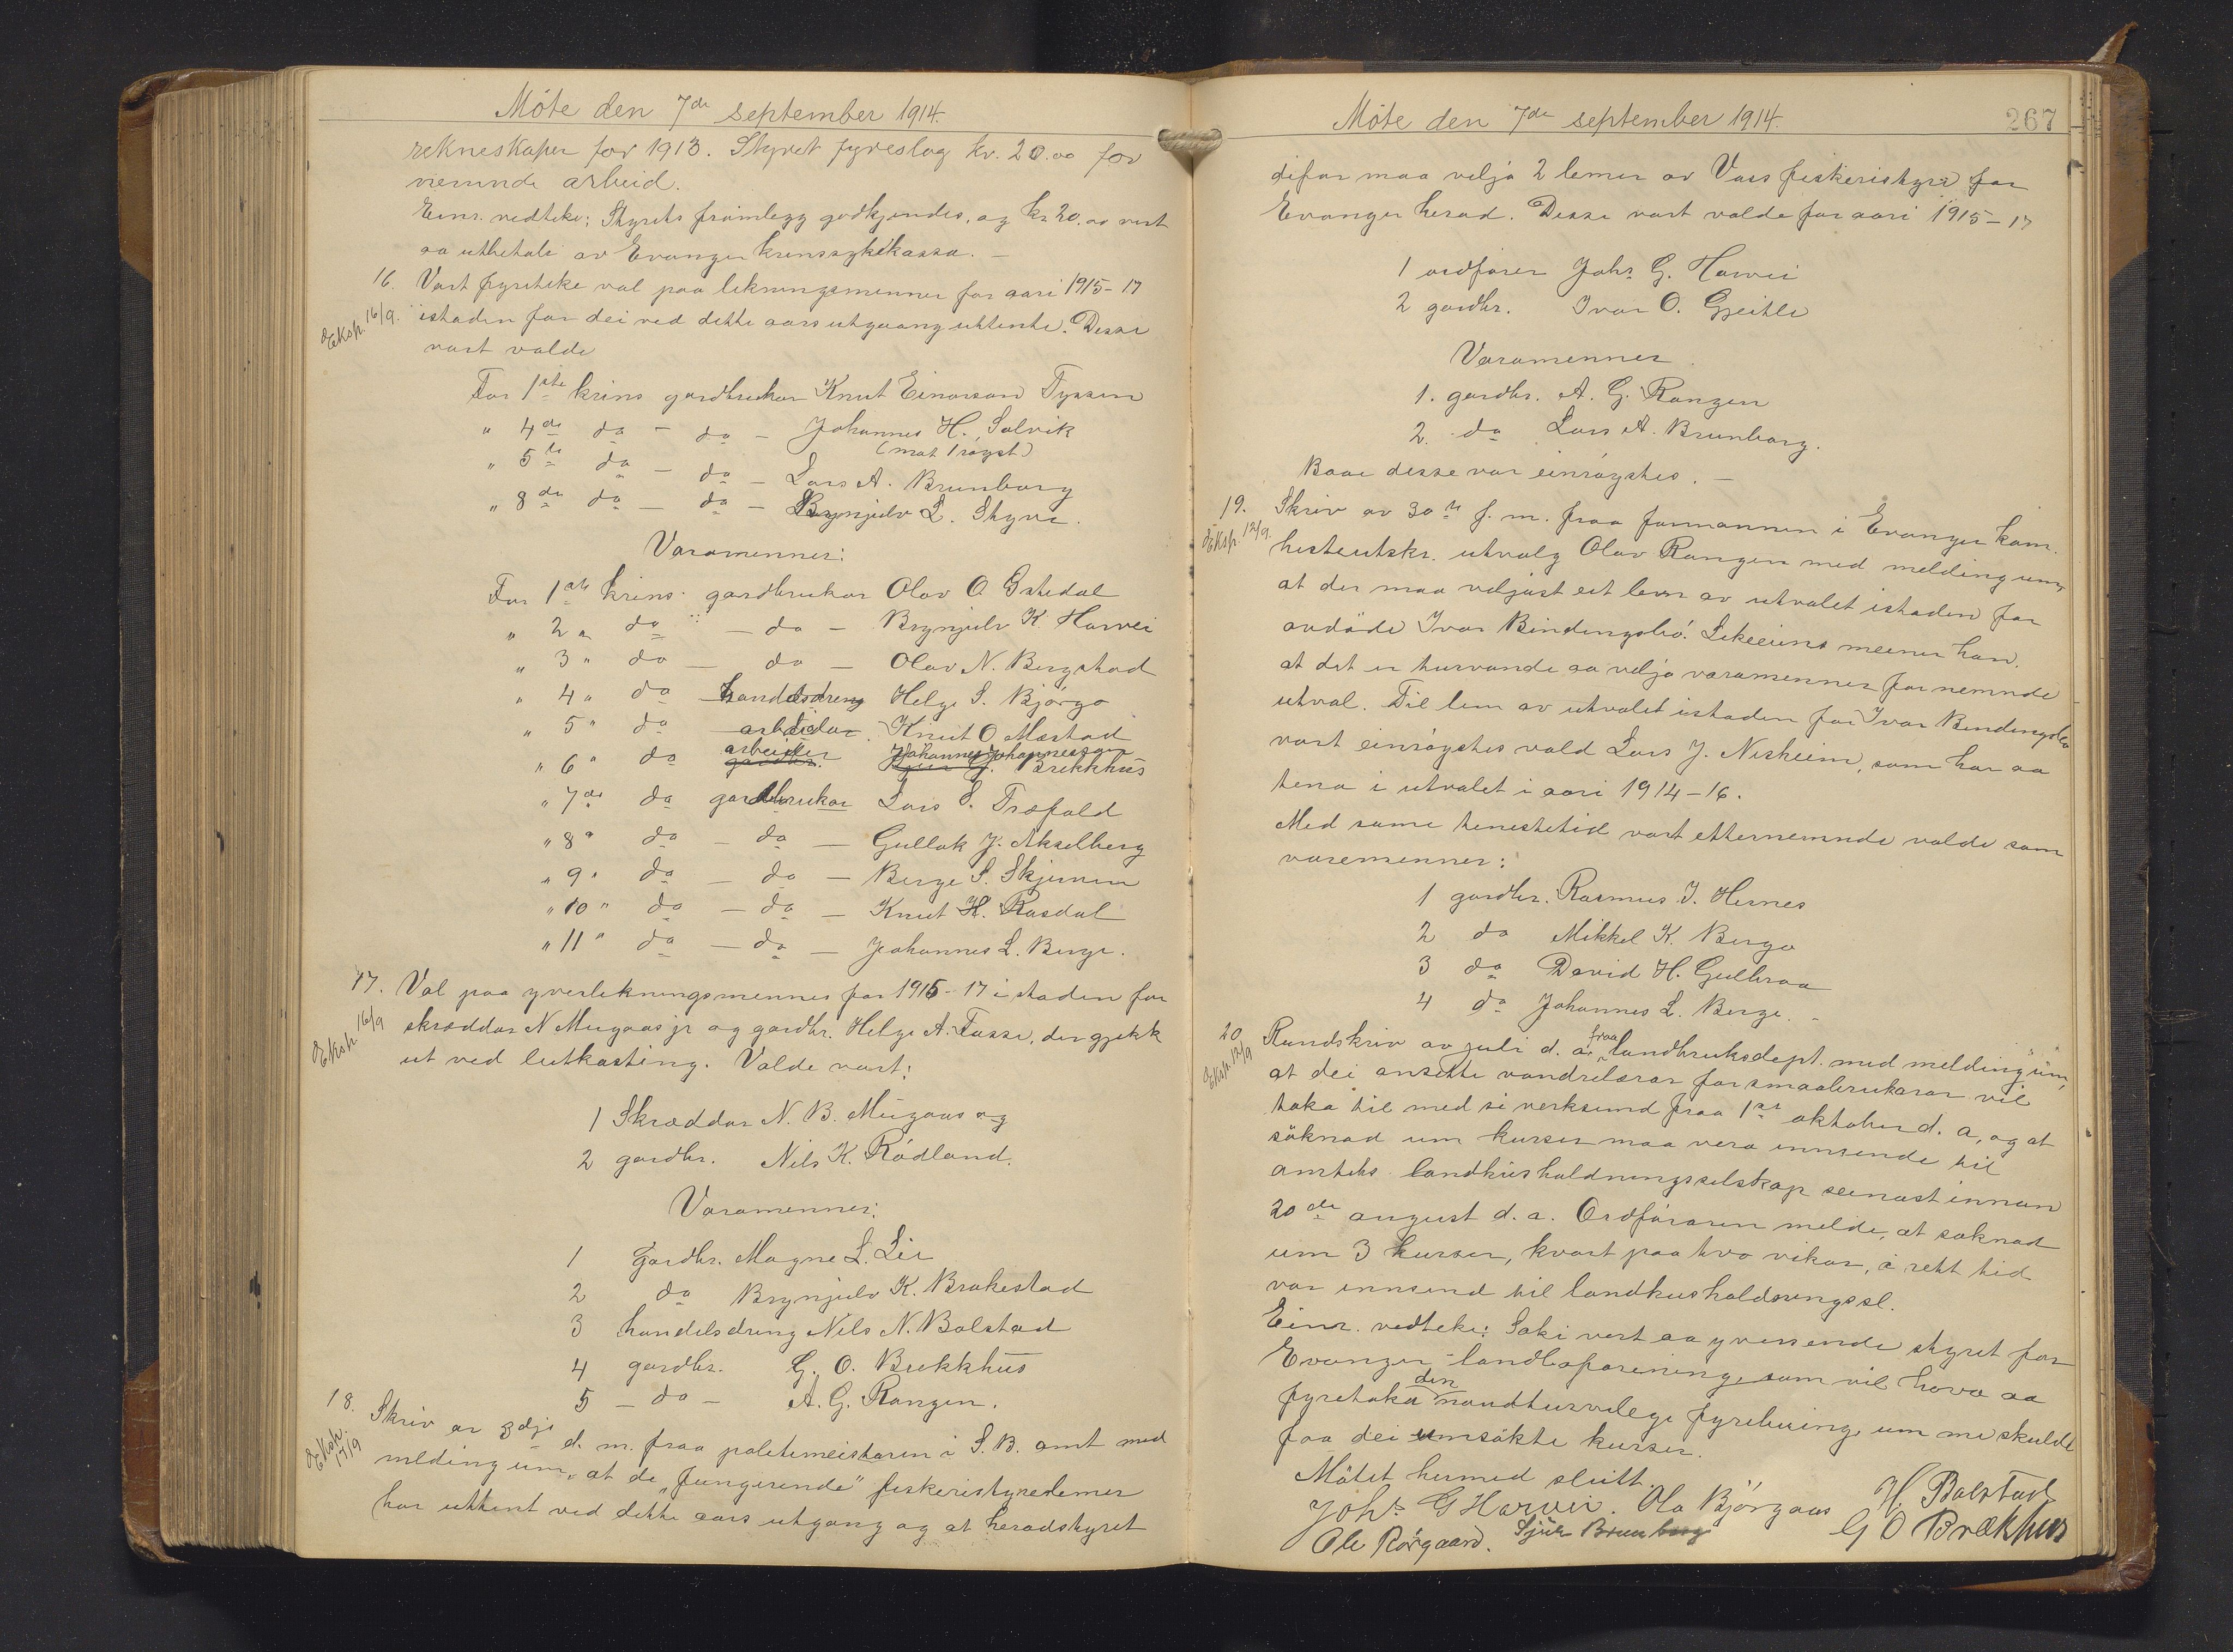 Möte den 7de september 1914.
rekneskaper for 1913. Styret fyreslog kr. 20.00 for
nemnde arbeid.
Einr. vedteke: Styrets framlegg godkjendes, og kr 20.00 vert
aa utbetale av Evanger krinssykekassa. —
16. Vart fyreteke val paa likningsmenner for aari 1915-17
Eksp. 16/9. istaden for dei ved dette aars utgaang uttente. Desse
vart valde
For 1ste krins gardbrukar Knut Einarson Fyssen
" 4de do - do - Johannes H. Solvik
(mot 1 røyst)
" 5te do - do - Lars A. Brunborg
" 8de do - do - Brynjulv L. Styve.
Varamenner:
For 1ste krins gardbrukar Olav O Gstedal
" 2 " do - do - Brynjulv K. Horvei
" 3 " do - do - Olav N. Bergstad
" 4 " do handelsdreng Helge S. Bjørgo
" 5 " do arbeidar Knut O Mæstad
arbeider Johannes Johannesson
" 6 " do gardbr. Brekkhus
" 7de do gardbrukar Lars S. Træfald
" 8 " do - do - Gullak J. Akselberg
" 9 " do - do - Berge S. Skjerven
" 10 " do - do - Knut H. Rasdal
" 11 " do - do - Johannes L. Berge.
17. Val paa yverlikningsmenner for 1915-17 i staden for
Eksp. 16/9 skræddar N Mugaas jr og gardbr. Helge A. Fasse, der gjekk
ut ved lutkasting. Valde vart:
1 Skræddar N. B. Mugaas og
2 gardbr. Nils K. Rödland.
Varamenner:
1 Gardbr. Magne L. Lir
2 do Brynjulv K. Brakestad
3 handelsdreng Nils N. Bolstad
4 gardbr. G. O. Brekkhus
5 - do - A. G. Rongen.
18. Skriv av 3dje d. m. fraa politimeisteren i S. B. amt med
Eksp. 17/9 melding um, at de "fungerende" fiskeristyrelemer
har uttent ved dette aars utgang og at heradstyret
Möte den 7de september 1914.
267
difor maa velja 2 lemer av Voss fiskeristyre for
Evanger herad. Desse vart valde for aari 1915-17
1 ordförer Johs G. Horvei
2 gardbr. Ivar O. Gjeitle
Varamenner
1. gardbr. A. G. Rongen
2. do Lars A. Brunborg.
Baae desse var einröystes. —
19. Skriv av 30te f. m. fraa formannen i Evanger kom.
Eksp. 12/9. hesteutskr. utvalg Olav Rongen med melding um,
at der maa veljast eit lem av utvalet istaden for
avdöde Ivar Bindingsbö. Likeeins meener han,
at det er turvande aa velja varamenner for nemnde
utval. Til lem av utvalet istaden for Ivar Bindingsbö
vart einröystes vald Lars J. Nesheim, som har aa
tena i utvalet i aari 1914-16.
Med same tenestetid vart etternemnde valde som
varemenner:
1 gardbr. Rasmus I. Hernes
2 do Mikkel K. Bergo
3 do David H. Gullbraa
4 do Johannes L. Berge. -
20. Rundskriv av juli d. a. fraa landbruksdept. med melding um,
Eksp. 12/9 at dei ansette vandrelærar for smaabrukarar vil
taka til med si verksemd fraa 1ste oktober d. a, og at
söknad um kurser maa vera innsende til
amtets landhusholdningsselskap seinast innan
20de august d. a. Ordföraren melde, at soknad
um 3 kurser, kvart paa tvo vikor, i rett tid
var innsend til landhusholdningssel.
Einr. vedteke: Saki vert aa yversende styret for
Evanger landboforening, som vil hova aa
fyretaka den naudturvelege fyrebuing, um me skulde
faa dei umsökte kurser.
Mötet hermed slutt.
Johs G Horvei. Ola Bjørgaas H. Bolstad
Ole Rørgaard. Sjur Brunborg G O Brækhus